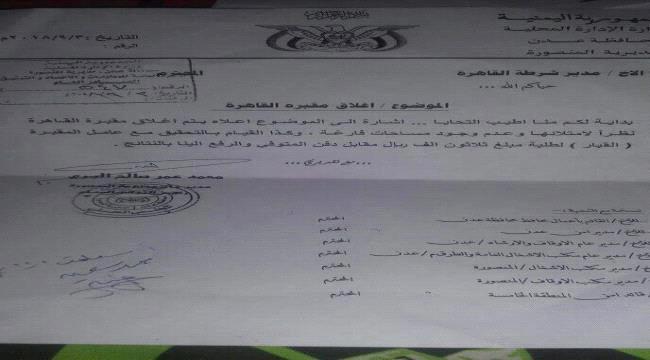 الجمهورية اليمنية
وزارة الإدارة المحلية
محافظة عدن
مديرية المنصورة
التاريخ: ٢٠١٨/٩/٣م
الرقم:
الأخ / مدير شرطة القاهرة
المحترم
حياكم الله ...
الموضوع / اغلاق مقبرة القاهرة
بداية لكم منا اطيب التحايا ... اشارة الى الموضوع اعلاه يتم اغلاق مقبرة القاهرة
نظراً لامتلائها وعدم وجود مساحات فارغة ، وكذا القيام بالتحقيق مع عامل المقبرة
( القبار ) لطلبة مبلغ ثلاثون الف ريال مقابل دفن المتوفي والرفع الينا بالنتائج .
محمد عمر صالح
نسخة مع التحية :
الأخ / القائم بأعمال محافظ محافظة عدن المحترم
الأخ / مدير امن عدن المحترم
الأخ / مدير عام الاوقاف والارشاد / عدن المحترم
الأخ / مدير عام مكتب الاشغال العامة والطرق / عدن المحترم
الأخ / مدير مكتب الاشغال / المنصورة المحترم
مدير مكتب الاوقاف / المنصورة المحترم
قائد امن المنطقة الخامسة المحترم